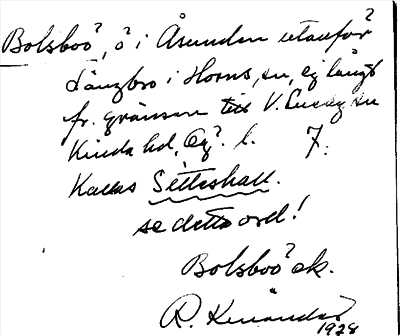 Bolsboö?, ö i Åsunden utanför?
Långbro i Horns, sn, ej långt
fr. gränsen till V. Eneby sn
Kinda hd, Ög?. l. 7.
Kallas Sitteshall.
se detta ord!
Bolsboö? ek.
R. Kinander
1928